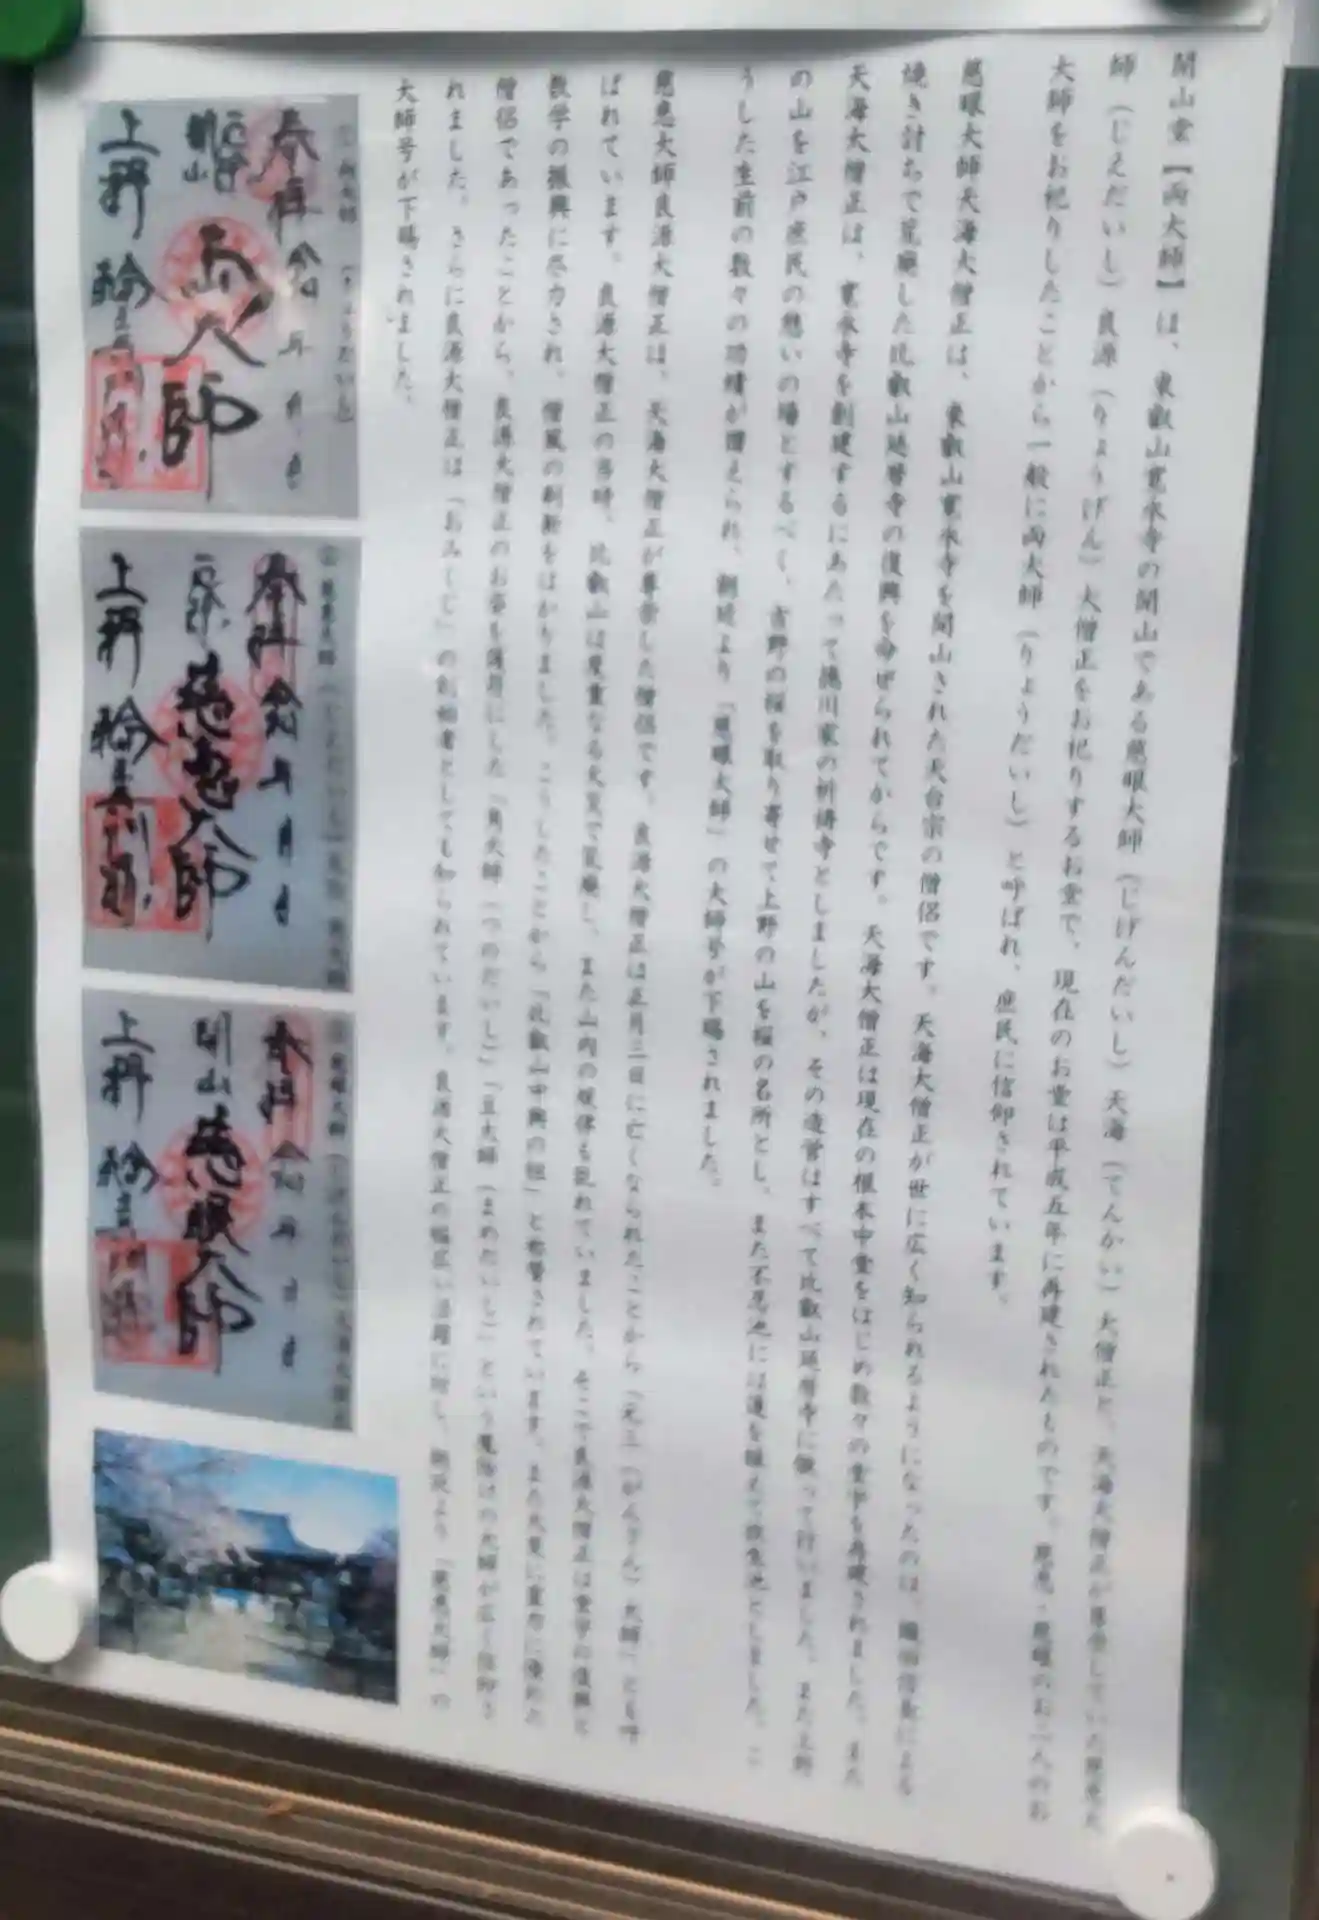 開山堂【両大師】は、東叡山寛永寺の開山である慈眼大師(じげんだいし)天海(てんかい)大僧正と、天海大僧正が尊崇していた慈恵大
師(じえだいし)良源(りょうげん)大僧正をお祀りするお堂で、現在のお堂は平成五年に再建されたものです。慈恵・慈眼のお二人のお
大師をお祀りしたことから一般に両大師(りょうだいし)と呼ばれ、庶民に信仰されています。
慈眼大師天海大僧正は、東叡山寛永寺を開山された天台宗の僧侶です。天海大僧正が世に広く知られるようになったのは、織田信長による
焼き討ちで荒廃した比叡山延暦寺の復興を命ぜられてからです。天海大僧正は現在の根本中堂をはじめ数々の堂宇を再建されました。また
天海大僧正は、寛永寺を創建するにあたって徳川家の祈祷寺としましたが、その造営はすべて比叡山延暦寺に倣って行いました。また上野
の山を江戸庶民の憩いの場とするべく、吉野の桜を取り寄せて上野の山を桜の名所とし、また不忍池には蓮を植えて放生池としました。こ
うした生前の数々の功績が讃えられ、朝廷より「慈眼大師」の大師号が下賜されました。
慈恵大師良源大僧正は、天海大僧正が尊崇した僧侶です。良源大僧正は正月三日に亡くなられたことから「元三(がんざん)大師」とも呼
ばれています。良源大僧正の当時、比叡山は度重なる火災で荒廃し、また山内の規律も乱れていました。そこで良源大僧正は堂宇の復興と
教学の振興に尽力され、僧風の刷新をはかりました。こうしたことから「比叡山中興の祖」と称賛されています。また大変に霊力に優れた
僧侶であったことから、良源大僧正のお姿を護符にした「角大師(つのだいし)」「豆大師(まめだいし)」という魔除けの大師が広く信仰さ
れました。さらに良源大僧正は「おみくじ」の創始者としても知られています。良源大僧正の幅広い活躍に対し、朝廷より「慈恵大師」の
大師号が下賜されました。
奉拝
両大師
上野 輪王寺
奉拝
慈恵大師
上野 輪王寺
奉拝
開山 慈眼大師
上野 輪王寺